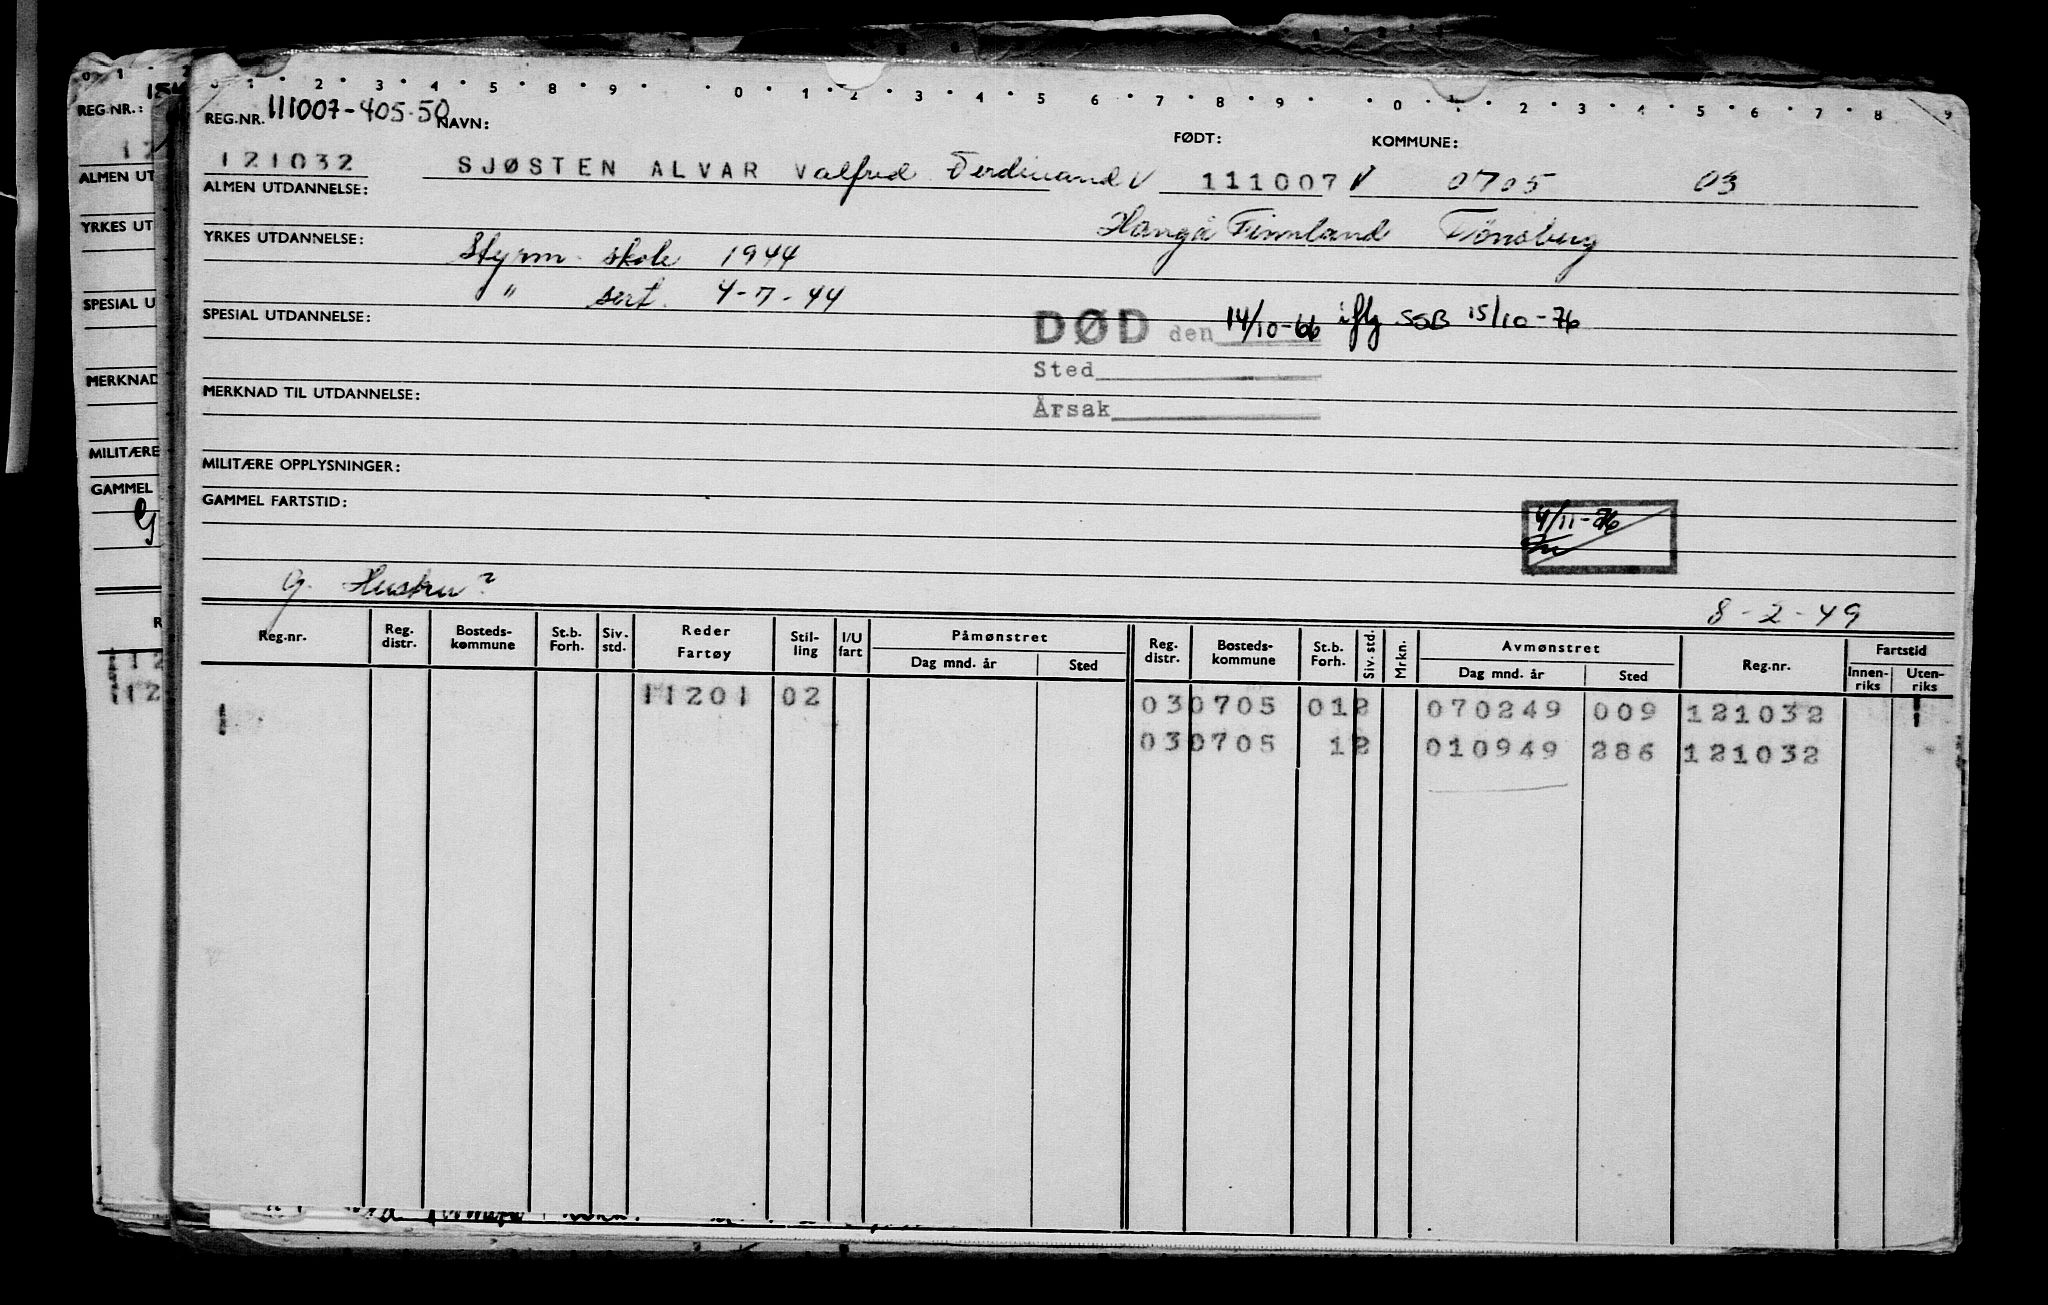 0 1 2
REG.NR.:
ALMEN UT
YRKES UT
SPESIAL U
MERKNAD
MILITÆRE
GAMMEL
0 1 2 3 4 5 8 9 0 1 2 3 4 5 6 7 8 9 0 1 2 3 4 5 6 7 8 9
REG.NR. 111007-405-50 NAVN: FØDT: KOMMUNE:
121032 SJØSTEN ALVAR Valfred Ferdinand V 111007 V 0705 03
ALMEN UTDANNELSE:
Hangø Finnland Tönsberg
YRKES UTDANNELSE: Styrm. skole 1944
" sert. 4-7-44
SPESIAL UTDANNELSE: DØD den 14/10-66 iflg SSB 15/10-76
Sted
Årsak
MERKNAD TIL UTDANNELSE:
MILITÆRE OPPLYSNINGER:
GAMMEL FARTSTID:
4/11-76
g. Hustru?
8-2-49
Reg.nr. Reg. distr. Bosteds-kommune St.b. Forh. Siv. std. Reder Fartøy Stil-ling I/U fart Påmønstret Dag mnd. år Sted Reg. distr. Bosteds-kommune St.b. Forh. Siv. std. Mrkn. Avmønstret Dag mnd. år Sted Reg.nr. Fartstid Innen-riks Uten-riks
11201 02 03 0705 01 2 070249 009 121032
03 0705 1 2 010949 286 121032